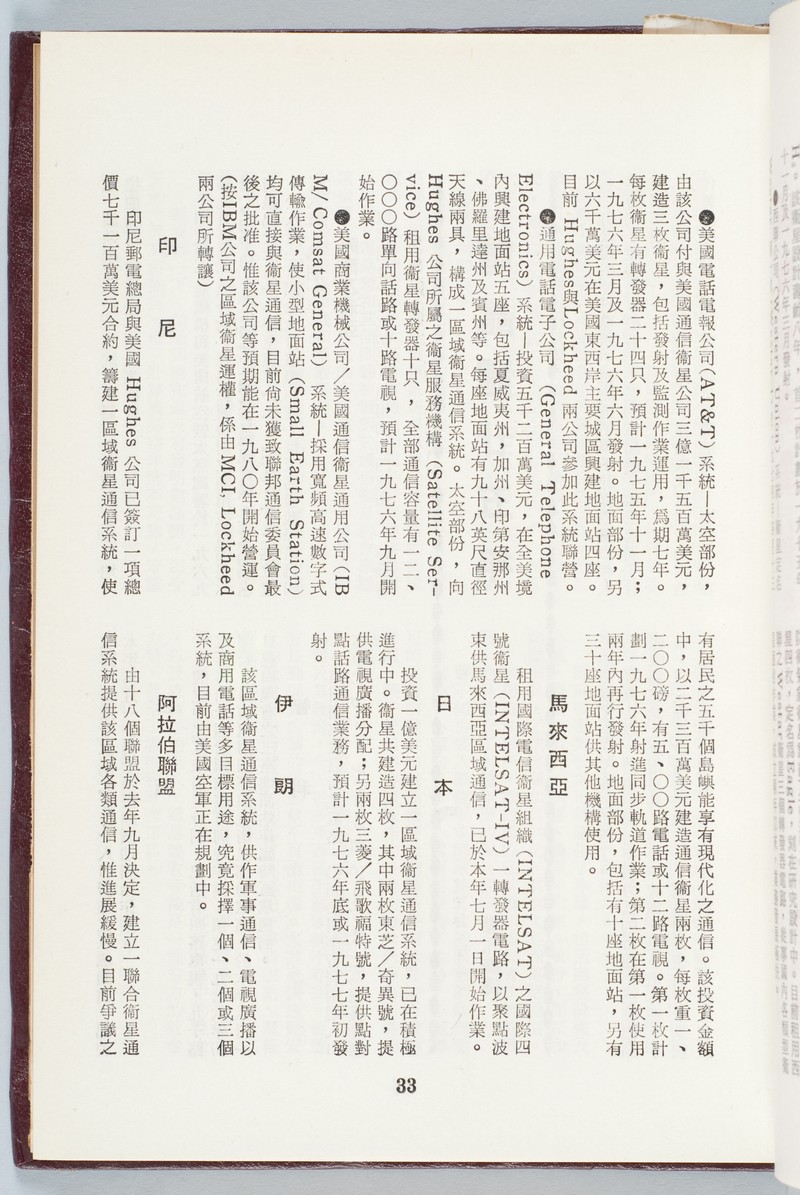 ●美國電話電報公司(AT&T)系統—太空部份，
由該公司付與美國通信衛星公司三億一千五百萬美元，
建造三枚衛星，包括發射及監測作業運用，爲期七年。
每枚衛星有轉發器二十四只，預計一九七五年十一月；
一九七六年三月及一九七六年六月發射。地面部份，另
以六千萬美元在美國東西岸主要城區興建地面站四座。
目前 Hughes與Lockheed 兩公司參加此系統聯營。
●通用電話電子公司 (General Telephone
Electronics) 系統—投資五千二百萬美元，在全美境
內興建地面站五座，包括夏威夷州，加州、印第安那州
、佛羅里達州及賓州等。每座地面站有九十八英尺直徑
天線兩具，構成一區域衛星通信系統。太空部份，向
Hughes 公司所屬之衛星服務機構 (Satellite Ser-
vice) 租用衛星轉發器十只，全部通信容量有一二、
〇〇〇路單向話路或十路電視，預計一九七六年九月開
始作業。
●美國商業機械公司／美國通信衛星通用公司(IB
M/Comsat General) 系統—採用寬頻高速數字式
傳輸作業，使小型地面站 (Small Earth Station)
均可直接與衛星通信，目前尚未獲致聯邦通信委員會最
後之批准。惟該公司等預期能在一九八〇年開始營運。
(按IBM公司之區域衛星運權，係由 MCI, Lockheed
兩公司所轉讓)
印尼
印尼郵電總局與美國 Hughes 公司已簽訂一項總
價七千一百萬美元合約，籌建一區域衛星通信系統，使
有居民之五千個島嶼能享有現代化之通信。該投資金額
中，以二千三百萬美元建造通信衛星兩枚，每枚重一、
二〇〇磅，有五、〇〇路電話或十二路電視。第一枚計
劃一九七六年射進同步軌道作業；第二枚在第一枚使用
兩年內再行發射。地面部份，包括有十座地面站，另有
三十座地面站供其他機構使用。
馬來西亞
租用國際電信衛星組織(INTELSAT)之國際四
號衛星(INTELSAT-IV)一轉發器電路，以聚點波
束供馬來西亞區域通信，已於本年七月一日開始作業。
日本
投資一億美元建立一區域衛星通信系統，已在積極
進行中。衛星共建造四枚，其中兩枚東芝／奇異號，提
供電視廣播分配；另兩枚三菱／飛歌福特號，提供點對
點話路通信業務，預計一九七六年底或一九七七年初發
射。
伊朗
該區域衛星通信系統，供作軍事通信、電視廣播以
及商用電話等多目標用途，究竟採擇一個、二個或三個
系統，目前由美國空軍正在規劃中。
阿拉伯聯盟
由十八個聯盟於去年九月決定，建立一聯合衛星通
信系統提供該區域各類通信，惟進展緩慢。目前爭議之
33